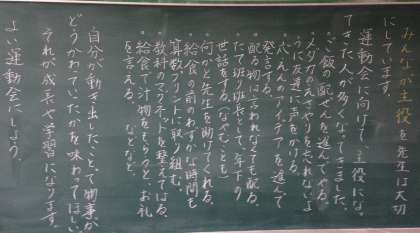 みんなが主役を先生は大切
にしています。
運動会に向けて、主役にな
てきた人が多くなってきました。
・ご飯の配ぜんを進んでやる。
うに友達に声をかける。
・応えんのアイデアを進んで
発言する。
・配る物は言われなくても配る。
・たて班で班長として、年下の
世話をする。
・何かと先生を助けてくれる。
・給食の前のわずかな時間も
算数プリントに取り組む。
・教科のマグネットを整えてくれる。
・給食で汁物をもらうと、お礼
を言える。 などなど。
自分が動き出したことで物事が
どうかわっていたかを味わってほしい。
それが成長や学習になります。
よい運動会にしよう。